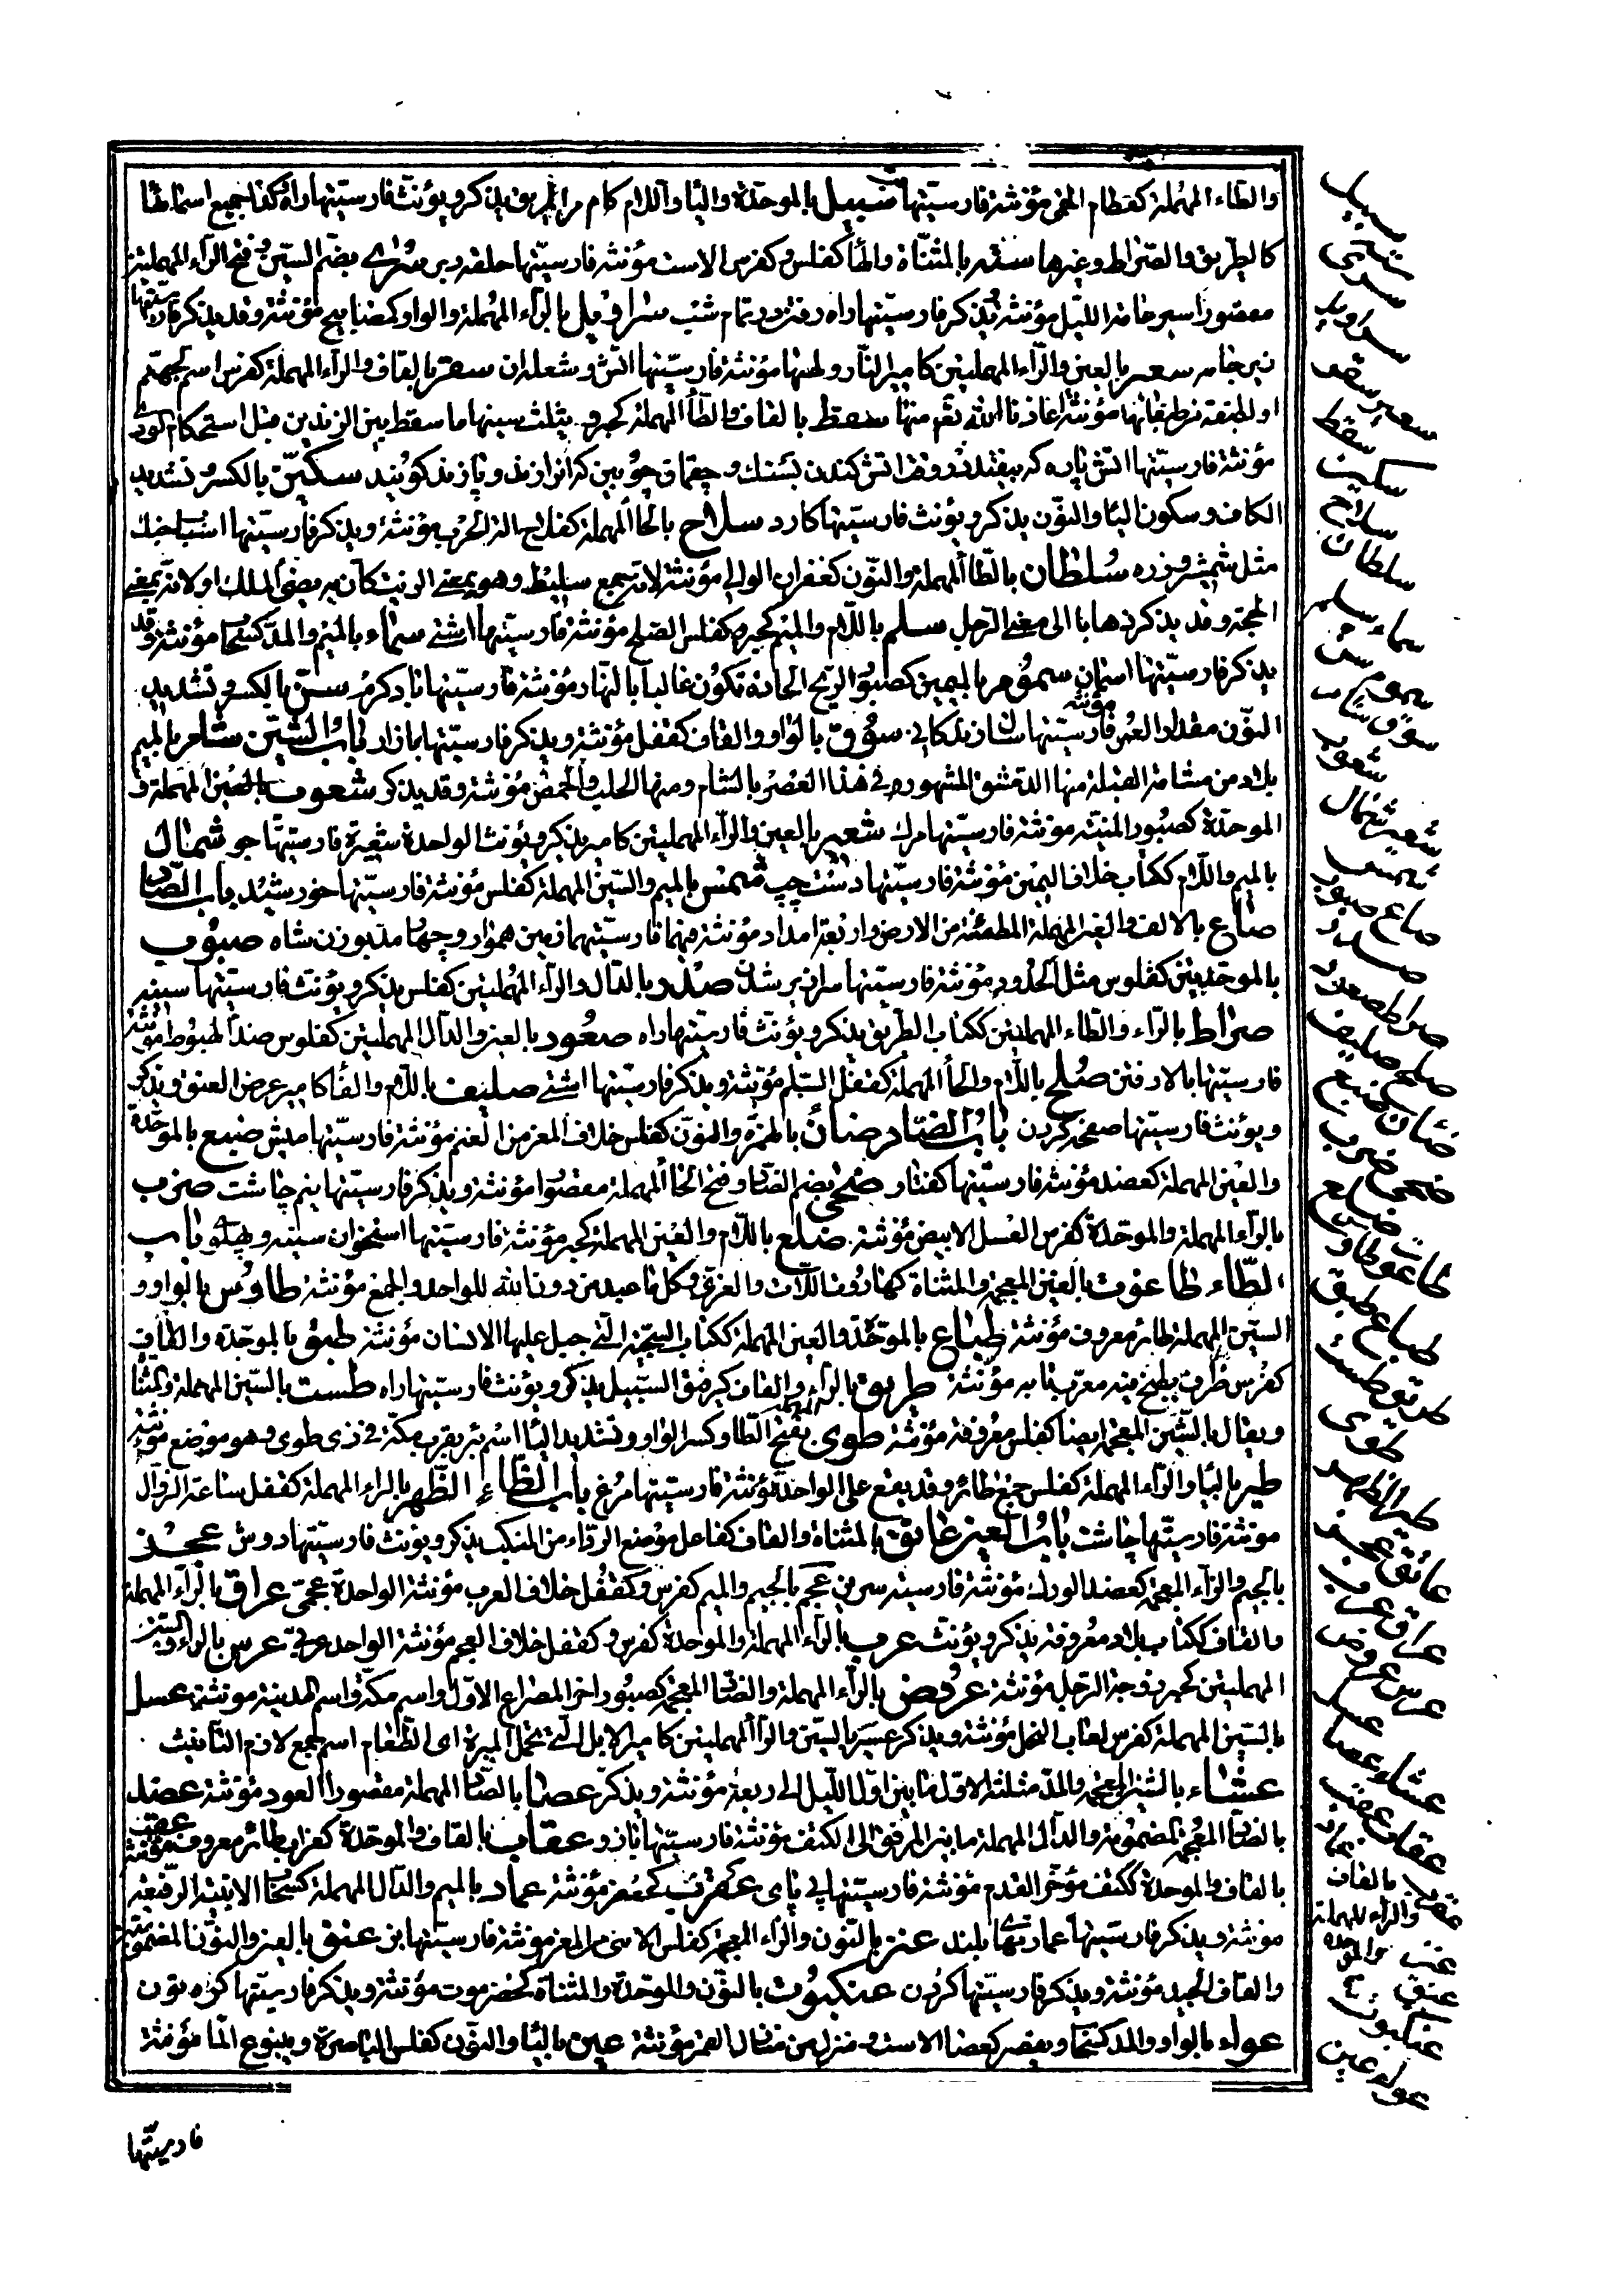 والطاء المهملة كقطام الحمى مؤنثة فارسيتها تب سبيل بالموحدة والياء واللام كامير الطريق يذكر ويؤنث فارسيتها راه كذا جميع اسمائها
كالطريق والصراط وغيرها سته بالمثناة والهاء كفلس وكفرس الاست مؤنثة فارسيتها حلقه دبر سرى بضم السين وفتح الراء المهملتين
مقصورا سير عامة الليل مؤنثة يذكر فارسيتها راه رفتن در تمام شب سراويل بالراء المهملة والواو كمصابيح مؤنثة وقد يذكر فارسيتها
زيرجامه سعير بالعين والراء المهملتين كامير النار ولهبها مؤنثة فارسيتها اتش وشعله ان سقر بالقاف والراء المهملة كفرس اسم لجهنم
او لطبقة من طبقاتها مؤنثة اعاذنا الله تعم منها سقط بالقاف والطاء المهملة كحبر ويثلث سينها ما سقط بين الزندين قبل استحكام الورى
مؤنثة فارسيتها اتش پاره كه بيفتد در وقت اتش كندن بسنك و چقماق چوبين كه انرا زند و پازند كويند سكين بالكسر وتشديد
الكاف وسكون الياء والنون يذكر ويؤنث فارسيتها كارد سلاح بالحاء المهملة كفلاح الة الحرب مؤنثة ويذكر فارسيتها اسباب جنك
مثل شمشير وزره سلطان بالطاء المهملة والنون كغفران الوالي مؤنثة لانه جمع سليط وهو بمعنى الزيت كان به يضئ الملك او لانه بمعنى
الحجة وقد يذكر ذهابا الى معنى الرجل سلم باللام والميم كحبر وكفلس الصلح مؤنثة فارسيتها اشتى سماء بالميم والمد كسحاب مؤنثة وقد
يذكر فارسيتها اسمان سموم بالميمين كصبور الريح الحارة تكون غالبا بالنهار مؤنثة فارسيتها باد كرم سن بالكسر وتشديد
النون مقدار العمر مؤنثة فارسيتها سال زندكانى سوق بالواو والقاف كقفل مؤنثة ويذكر فارسيتها بازار باب الشين شام بالميم
بلاد من مشامة القبلة منها الدمشق المشهورة في هذا العصر بالشام ومنها الحلب والحمص مؤنثة وقد يذكر شعوب بالعين المهملة و
الموحدة كصبور المنية مؤنثة فارسيتها مرك شعير بالعين والراء المهملتين كامير يذكر ويؤنث الواحدة شعيرة فارسيتها جو شمال
بالميم واللام ككتاب خلاف اليمين مؤنثة فارسيتها دست چپ شمس بالميم والسين المهملة كفلس مؤنثة فارسيتها خورشيد باب الصاد
صاع بالالف والعين المهملة المطمئنة من الارض واربعة امداد مؤنثة فيهما فارسيتهما زمين هموار و چهار مد بوزن شاه صبوب
بالموحدتين كفلوس مثل الحدور مؤنثة فارسيتها سرازير شدن صدر بالدال والراء المهملتين كفلس يذكر ويؤنث فارسيتها سينه
صراط بالراء والطاء المهملتين ككتاب الطريق يذكر ويؤنث فارسيتها راه صعود بالعين والدال المهملتين كفلوس ضد الهبوط مؤنثة
فارسيتها بالا رفتن صلح باللام والحاء المهملة كقفل السلم مؤنثة ويذكر فارسيتها اشتى صليف باللام والفاء كامير عرض العنق ويذكر
ويؤنث فارسيتها صفحه كردن باب الضاد ضأن بالهمزة والنون كفلس خلاف المعز من الغنم مؤنثة فارسيتها ميش ضبع بالموحدة
والعين المهملة كعضد مؤنثة فارسيتها كفتار ضحى بضم الضاد وفتح الحاء المهملة مقصورا مؤنثة ويذكر فارسيتها نيم چاشت ضرب
بالراء المهملة والموحدة كفرس العسل الابيض مؤنثة ضلع باللام والعين المهملة كحبر مؤنثة فارسيتها استخوان سينه و پهلو باب
الطاء طاغوت بالغين المعجمة والمثناة كهاروت اللات والعزى وكل ما عبد من دون الله للواحد والجمع مؤنثة طاوس بالواو و
السين المهملة طائر معروف مؤنثة طباع بالموحدة والعين المهملة ككتاب السجية التي جبل عليها الانسان مؤنثة طبق بالموحدة والقاف
كفرس ظرف يطبخ فيه معرب تابه مؤنثة طريق بالراء المهملة والقاف كرفيق السبيل يذكر ويؤنث فارسيتها راه طست بالسين المهملة والمثناة
ويقال بالشين المعجمة ايضا كفلس معروفة مؤنثة طوى بفتح الطاء وكسر الواو وتشديد الياء اسم بئر بقرب مكة في ذي طوى وهو موضع مؤنثة
طير بالياء والراء المهملة كفلس جمع طائر وقد يقع على الواحد مؤنثة فارسيتها مرغ باب الظاء الظهر بالراء المهملة كقفل ساعة الزوال
مؤنثة فارسيتها چاشت باب العين عاتق بالمثناة والقاف كفاعل موضع الرداء من المنكب يذكر ويؤنث فارسيتها دوش عجز
بالجيم والزاء المعجمة كعضد الورك مؤنثة فارسيته سرين عجم بالجيم والميم كفرس وكقفل خلاف العرب مؤنثة الواحدة عجمي عراق بالراء المهملة
والقاف ككتاب بلاد معروفة يذكر ويؤنث عرب بالراء المهملة والموحدة كفرس وكقفل خلاف العجم مؤنثة الواحد عربي عرس بالراء والسين
المهملتين كحبر زوجة الرجل مؤنثة عروض بالراء المهملة والضاد المعجمة كصبور اخر المصراع الاول واسم مكة واسم المدينة مؤنثة عسل
بالسين المهملة كفرس لعاب النحل مؤنثة ويذكر عير بالسين والراء المهملتين كامير الابل التي تحمل الميرة اى الطعام اسم جمع لازم التانيث
عشاء بالشين المعجمة والمد مثلثة الاول ما بين اول الليل الى ربعه مؤنثة ويذكر عصا بالصاد المهملة مقصورا العود مؤنثة عضد
بالضاد المعجمة المضمومة والدال المهملة ما بين المرفق الى الكتف مؤنثة فارسيتها بازو عقاب بالقاف والموحدة كغراب طائر معروف مؤنثة عقب
بالقاف والموحدة ككتف مؤخر القدم مؤنثة فارسيتها پى پاى عقرب كجعفر مؤنثة عماد بالميم والدال المهملة ككتاب الابنية الرفيعة
مؤنثة ويذكر فارسيتها عمارتهاى بلند عنز بالنون والزاء المعجمة كفلس الانثى من المعز مؤنثة فارسيتها بز عنق بالعين والنون المضمومتين
والقاف الجيد مؤنثة ويذكر فارسيتها كردن عنكبوت بالنون والموحدة والمثناة كحضرموت مؤنثة ويذكر فارسيتها كره تون
عواء بالواو والمد ككتان ويقصر كعصا الاست ومنزل من منازل القمر مؤنثة عين بالياء والنون كفلس الباصرة وينبوع الماء مؤنثة
فارسيتها
سبيل
سته سرى
سراويل
سعير سقر
سقط
سكين
سلاح
سلطان
سماء سلم
سموم سن
سوق شام
شعوب
شعير شمال
شمس
صاع صبوب
صدر
صراط صعود
صلح صليف
ضأن ضبع
ضحى ضرب
ضلع
طاغوت طاوس
طباع طبق
طريق طست
طوى
طير الظهر
عاتق عجز
عجم
عراق عرب
عرس عروض
عسل
عشاء عصا
عضد
عقاب عقب
عقرب بالقاف
والراء المهملة
والموحدة
عماد
عنز
عنق
عنكبوت
عواء عين